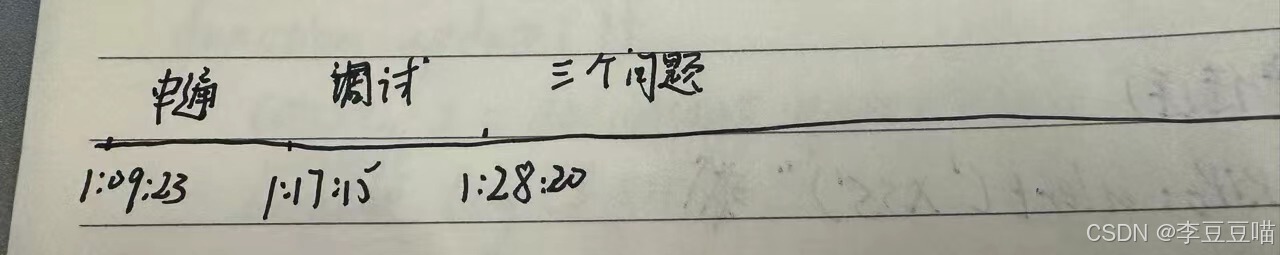 申通 调试 三个问题
1:09:23 1:17:15 1:28:20
CSDN @李豆豆喵